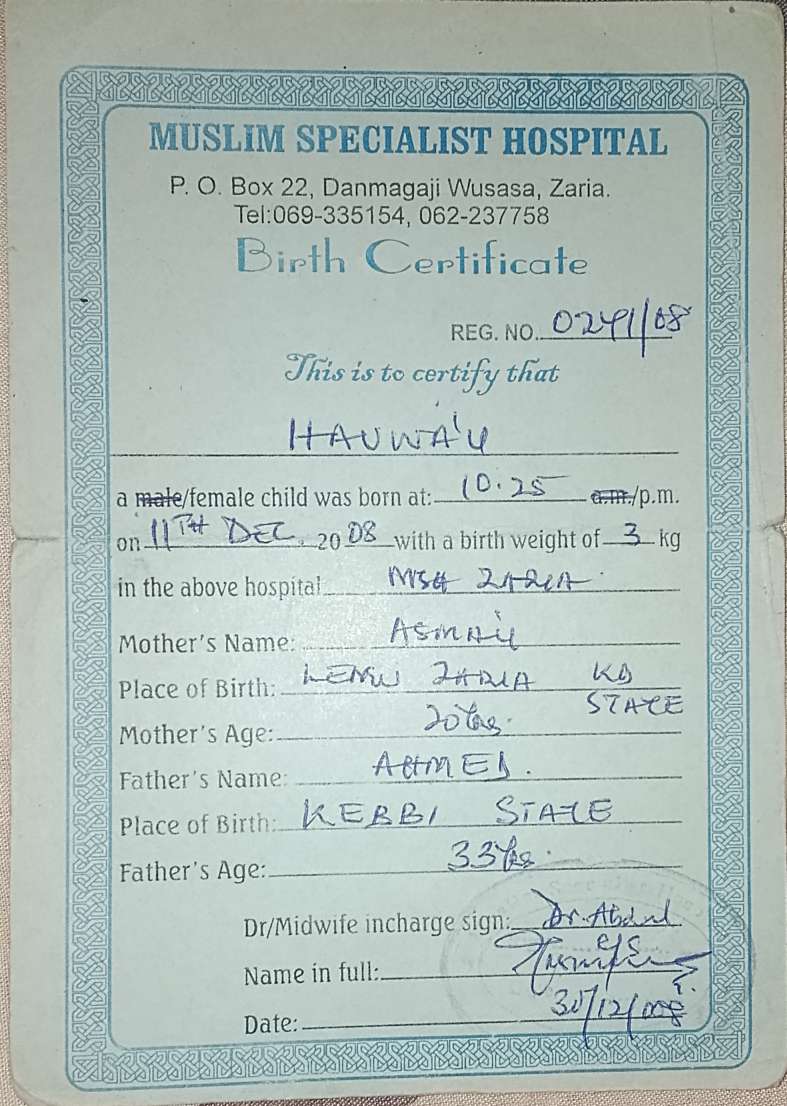 MUSLIM SPECIALIST HOSPITAL
P. O. Box 22, Danmagaji Wusasa, Zaria.
Tel:069-335154, 062-237758
Birth Certificate
REG. NO. 0291/08
This is to certify that
HAUWA'U
a male/female child was born at: 10.25 a.m./p.m.
on 11TH DEC. 2008 with a birth weight of 3 kg
in the above hospital MSH ZARIA
Mother's Name: ASMA'U
Place of Birth: LEMU ZARIA KD STATE
Mother's Age: 20yrs.
Father's Name: AHMED.
Place of Birth: KEBBI STATE
Father's Age: 33yrs.
Dr/Midwife incharge sign: Dr. Abdul
Name in full:
Date: 30/12/008